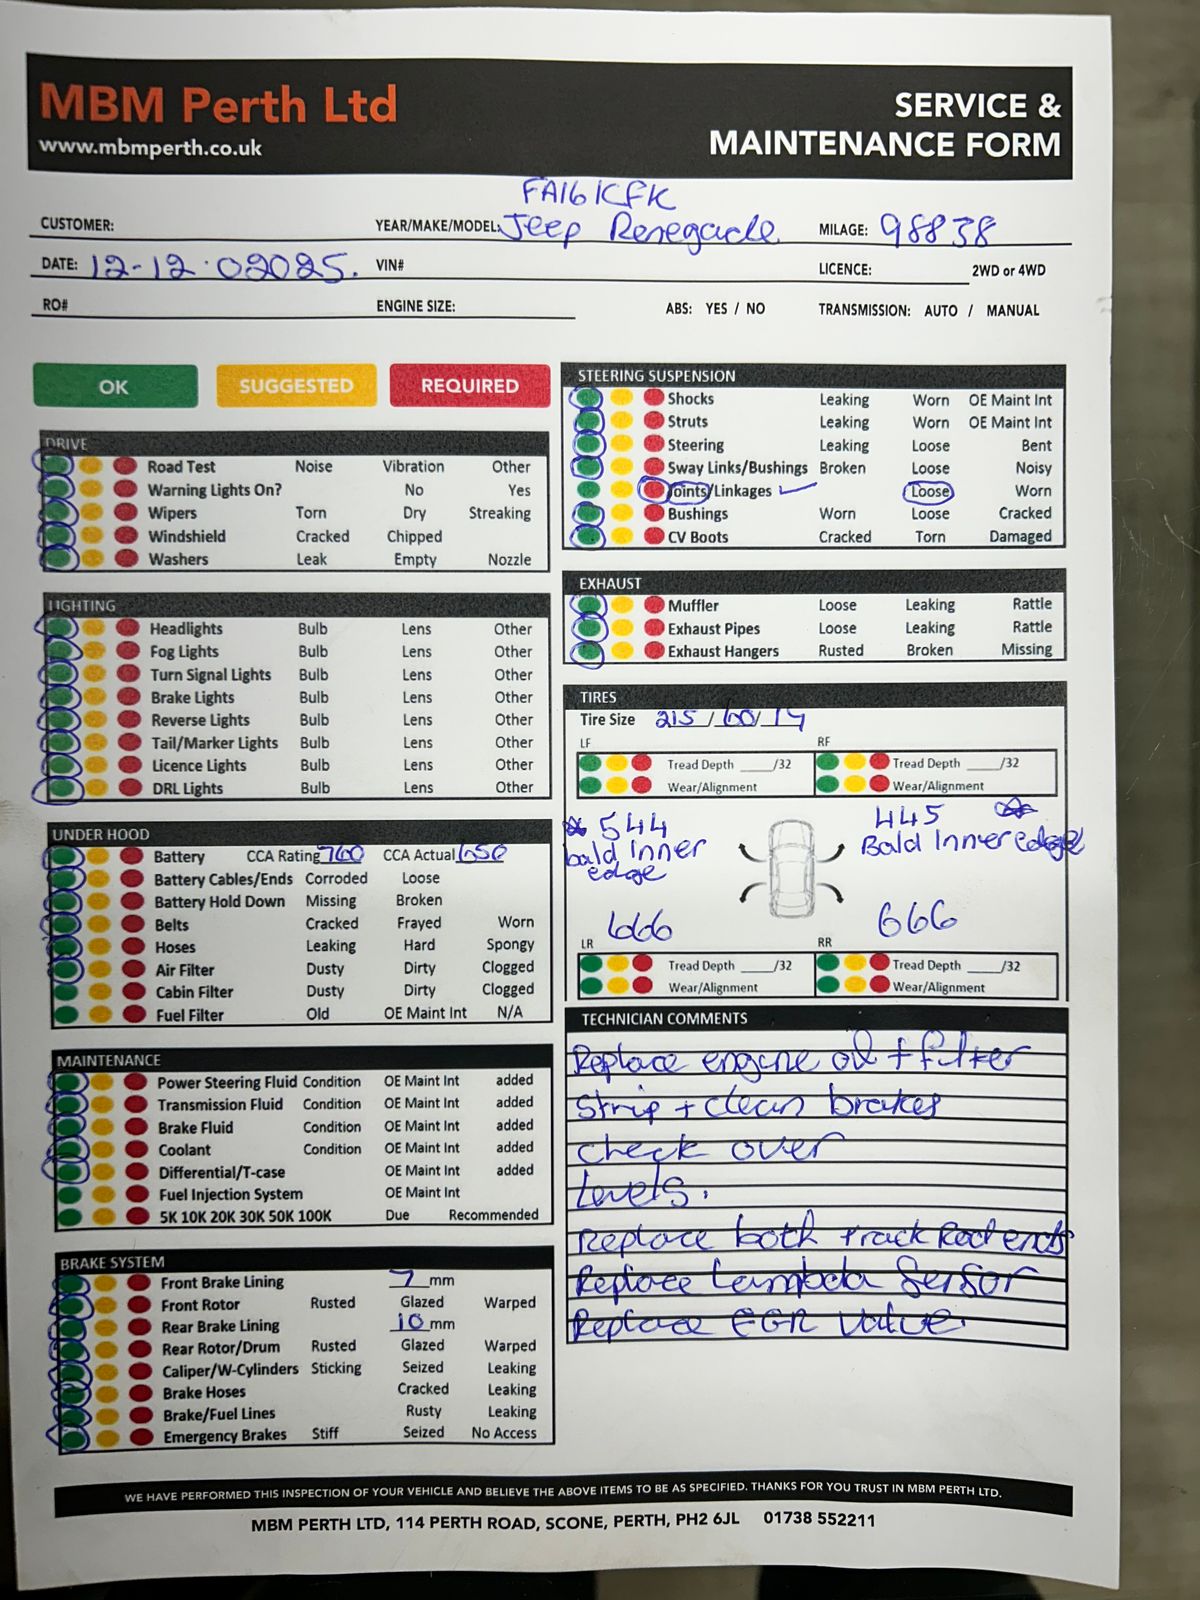 MBM Perth Ltd
www.mbmperth.co.uk
SERVICE &
MAINTENANCE FORM
FA161CFK
CUSTOMER: YEAR/MAKE/MODEL: Jeep Renegade MILAGE: 98838
DATE: 12-12.02025. VIN# LICENCE: 2WD or 4WD
RO# ENGINE SIZE: ABS: YES / NO TRANSMISSION: AUTO / MANUAL
OK SUGGESTED REQUIRED
DRIVE
Road Test Noise Vibration Other
Warning Lights On? No Yes
Wipers Torn Dry Streaking
Windshield Cracked Chipped
Washers Leak Empty Nozzle
LIGHTING
Headlights Bulb Lens Other
Fog Lights Bulb Lens Other
Turn Signal Lights Bulb Lens Other
Brake Lights Bulb Lens Other
Reverse Lights Bulb Lens Other
Tail/Marker Lights Bulb Lens Other
Licence Lights Bulb Lens Other
DRL Lights Bulb Lens Other
UNDER HOOD
Battery CCA Rating 760 CCA Actual 650
Battery Cables/Ends Corroded Loose
Battery Hold Down Missing Broken
Belts Cracked Frayed Worn
Hoses Leaking Hard Spongy
Air Filter Dusty Dirty Clogged
Cabin Filter Dusty Dirty Clogged
Fuel Filter Old OE Maint Int N/A
MAINTENANCE
Power Steering Fluid Condition OE Maint Int added
Transmission Fluid Condition OE Maint Int added
Brake Fluid Condition OE Maint Int added
Coolant Condition OE Maint Int added
Differential/T-case OE Maint Int added
Fuel Injection System OE Maint Int
5K 10K 20K 30K 50K 100K Due Recommended
BRAKE SYSTEM
Front Brake Lining 7 mm
Front Rotor Rusted Glazed Warped
Rear Brake Lining 10 mm
Rear Rotor/Drum Rusted Glazed Warped
Caliper/W-Cylinders Sticking Seized Leaking
Brake Hoses Cracked Leaking
Brake/Fuel Lines Rusty Leaking
Emergency Brakes Stiff Seized No Access
STEERING SUSPENSION
Shocks Leaking Worn OE Maint Int
Struts Leaking Worn OE Maint Int
Steering Leaking Loose Bent
Sway Links/Bushings Broken Loose Noisy
Joints/Linkages Loose Worn
Bushings Worn Loose Cracked
CV Boots Cracked Torn Damaged
EXHAUST
Muffler Loose Leaking Rattle
Exhaust Pipes Loose Leaking Rattle
Exhaust Hangers Rusted Broken Missing
TIRES
Tire Size 215 / 60 / 17
LF RF
Tread Depth ____/32 Tread Depth ____/32
Wear/Alignment Wear/Alignment
544 445
bald inner Bald Inner edge
edge
666 666
LR RR
Tread Depth ____/32 Tread Depth ____/32
Wear/Alignment Wear/Alignment
TECHNICIAN COMMENTS
Replace engine oil + filter
Strip + clean brakes
Check over
Levels.
Replace both track Rod ends
Replace Lambda Sensor
Replace EGR Valve.
WE HAVE PERFORMED THIS INSPECTION OF YOUR VEHICLE AND BELIEVE THE ABOVE ITEMS TO BE AS SPECIFIED. THANKS FOR YOU TRUST IN MBM PERTH LTD.
MBM PERTH LTD, 114 PERTH ROAD, SCONE, PERTH, PH2 6JL 01738 552211